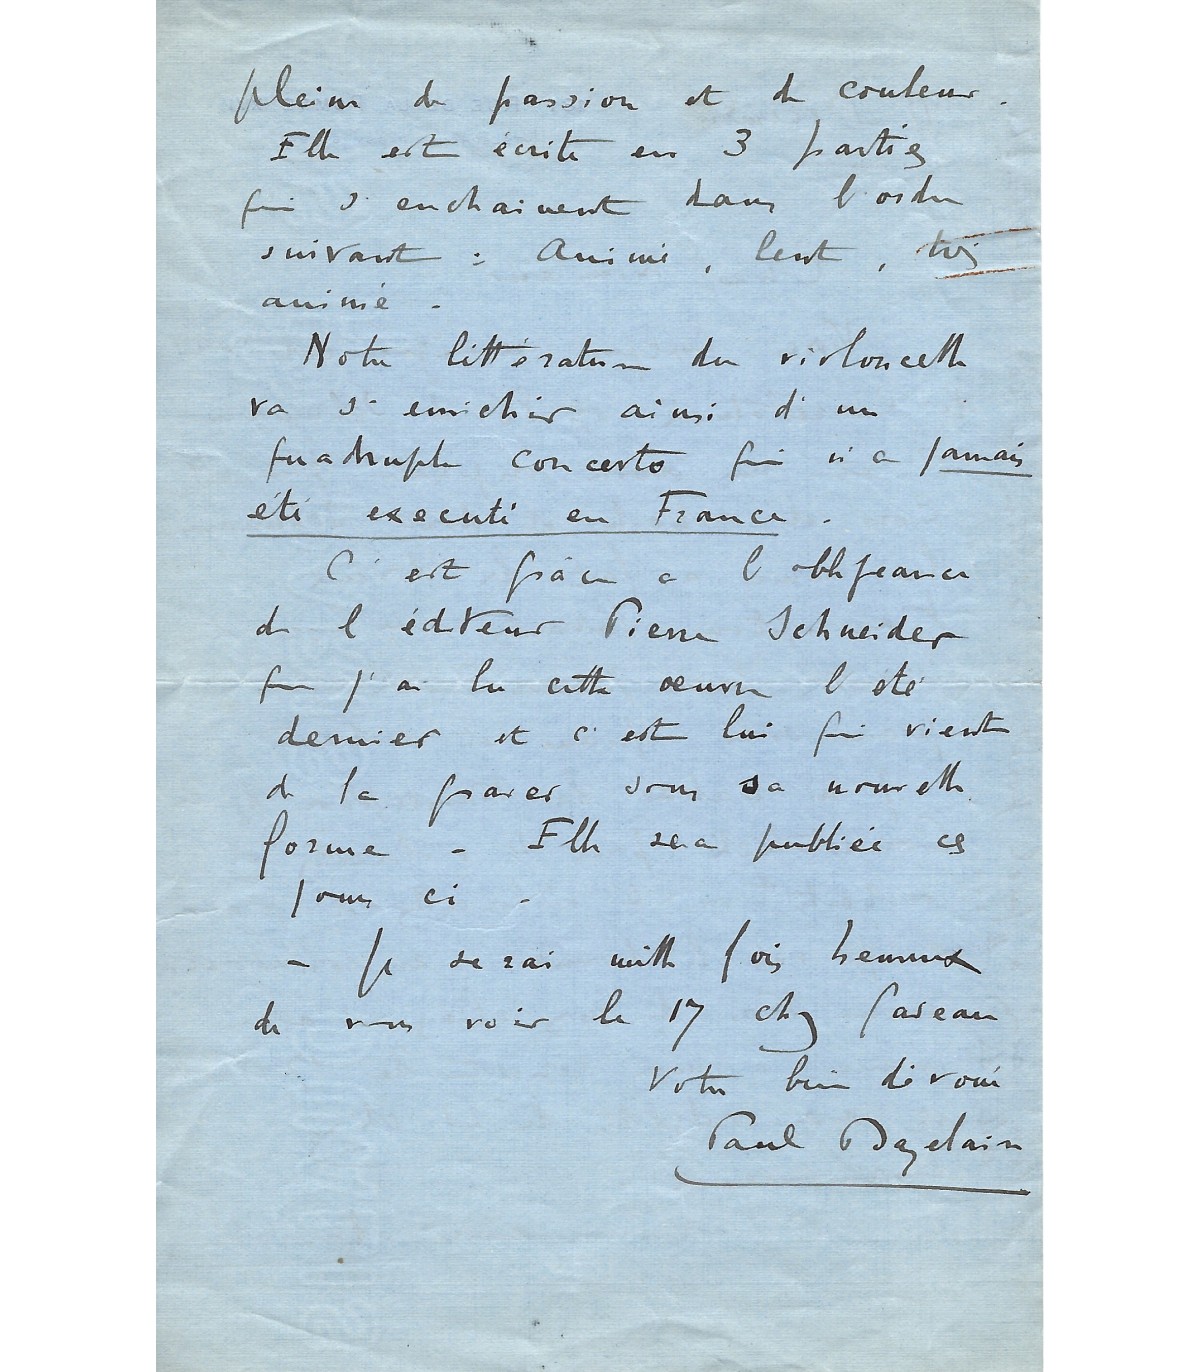 pleine de passion et de couleur.
Elle est écrite en 3 parties
qui s'enchainent dans l'ordre
suivant : Animé, lent, très
animé -
Notre littérature du violoncelle
va s'enrichir ainsi d'un
quadruple concerto qui n'a jamais
été executé en France.
C'est grâce a l'obligeance
de l'éditeur Pierre Schneider
que j'ai lu cette oeuvre l'été
dernier et c'est lui qui vient
de la graver sous sa nouvelle
forme - Elle sera publiée ces
jours ci -
- Je serai mille fois heureux
de vous voir le 17 chez Gaveau
Votre bien dévoué
Paul Bazelaire